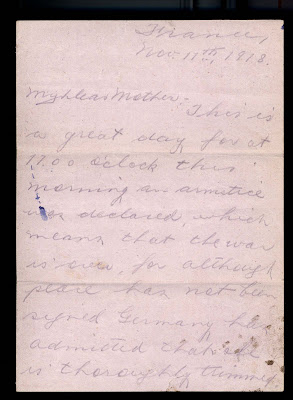 France,
Nov. 11th, 1918.
My dear Mother-
This is
a great day for at
11.00 o'clock this
morning an armstice
was declared, which
means that the war
is over, for although
peace has not been
signed Germany has
admitted that she
is thoroughly trimmed